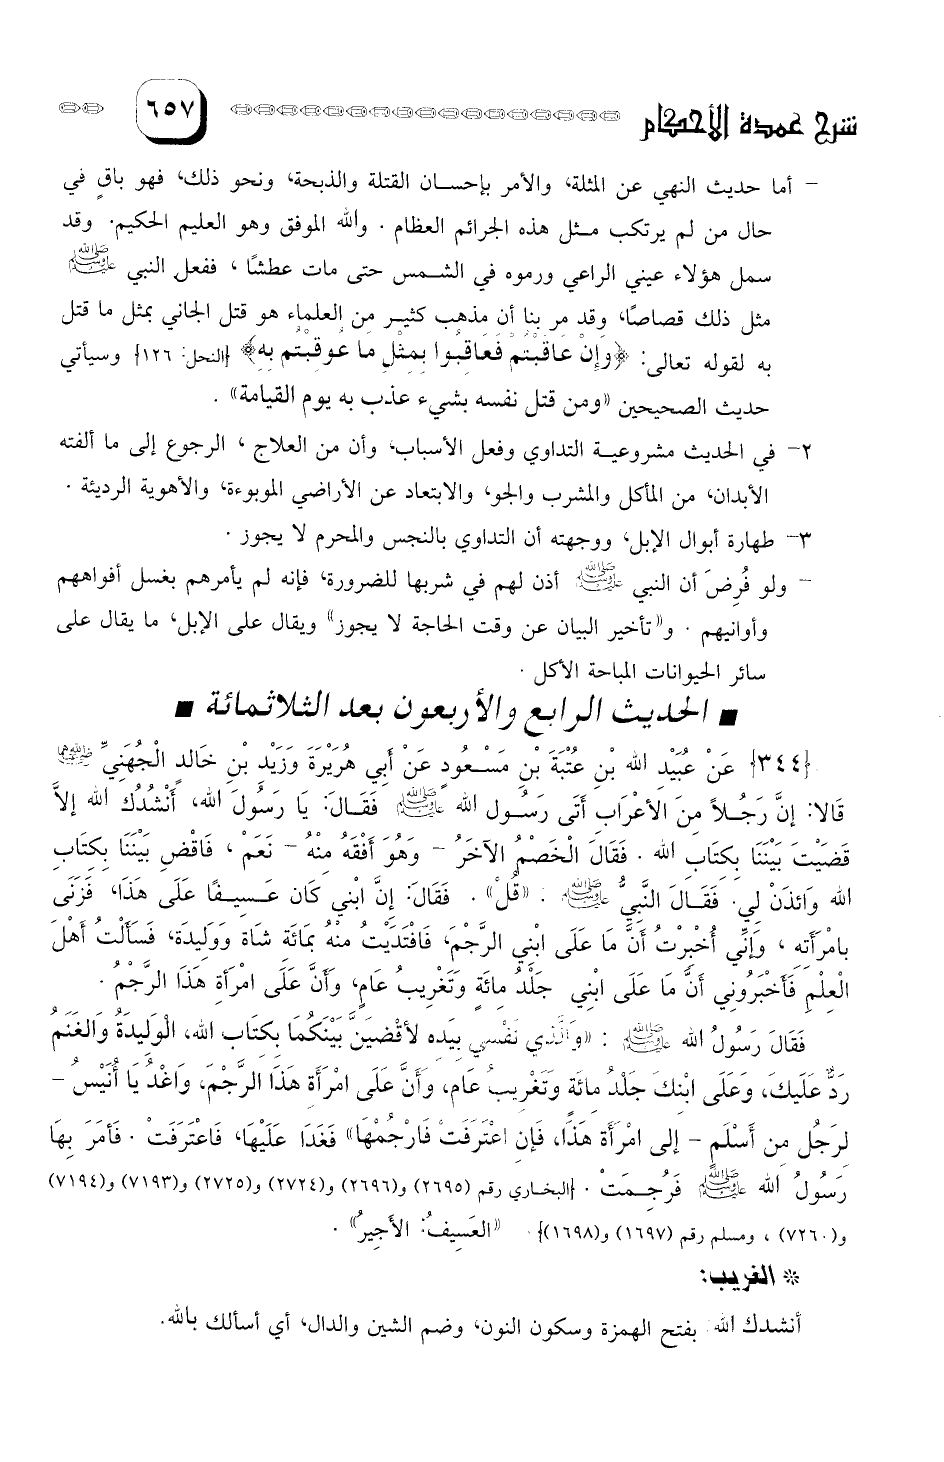 شرح عمدة الأحكام
٦٥٧
– أما حديث النهي عن المثلة، والأمر بإحسان القتلة والذبحة، ونحو ذلك، فهو باقٍ في
حال من لم يرتكب مثل هذه الجرائم العظام . والله الموفق وهو العليم الحكيم. وقد
سمل هؤلاء عيني الراعي ورموه في الشمس حتى مات عطشًا ، ففعل النبي ﷺ
مثل ذلك قصاصًا، وقد مر بنا أن مذهب كثير من العلماء هو قتل الجاني بمثل ما قتل
به لقوله تعالى: ﴿وَإِنْ عَاقَبْتُمْ فَعَاقِبُوا بِمِثْلِ مَا عُوقِبْتُم بِهِ﴾ {النحل: ١٢٦} وسيأتي
حديث الصحيحين «ومن قتل نفسه بشيء عذب به يوم القيامة» .
٢– في الحديث مشروعية التداوي وفعل الأسباب، وأن من العلاج ، الرجوع إلى ما ألفته
الأبدان، من المأكل والمشرب والجو، والابتعاد عن الأراضي الموبوءة، والأهوية الرديئة .
٣– طهارة أبوال الإبل، ووجهته أن التداوي بالنجس والمحرم لا يجوز .
– ولو فُرِضَ أن النبي ﷺ أذن لهم في شربها للضرورة، فإنه لم يأمرهم بغسل أفواههم
وأوانيهم . و«تأخير البيان عن وقت الحاجة لا يجوز» ويقال على الإبل، ما يقال على
سائر الحيوانات المباحة الأكل .
■ الحديث الرابع والأربعون بعد الثلاثمائة ■
{٣٤٤} عَنْ عُبَيْدِ الله بْنِ عُتْبَةَ بْنِ مَسْعُودٍ عَنْ أَبِي هُرَيْرَةَ وَزَيْدِ بْنِ خَالِدٍ الْجُهَنِيِّ رضي الله عنهما
قَالا: إِنَّ رَجُلاً مِنَ الأَعْرَابِ أَتَى رَسُولَ الله ﷺ فَقَالَ: يَا رَسُولَ الله، أَنْشُدُكَ الله إِلاَّ
قَضَيْتَ بَيْنَنَا بِكِتَابِ الله . فَقَالَ الْخَصْمُ الآخَرُ – وَهُوَ أَفْقَهُ مِنْهُ – نَعَمْ ، فَاقْضِ بَيْنَنَا بِكِتَابِ
الله وَائْذَنْ لِي. فَقَالَ النَّبِيُّ ﷺ : «قُلْ» . فَقَالَ: إِنَّ ابْنِي كَانَ عَسِيفًا عَلَى هَذَا، فَزَنَى
بِامْرَأَتِهِ ، وَإِنِّي أُخْبِرْتُ أَنَّ مَا عَلَى ابْنِي الرَّجْمَ، فَافْتَدَيْتُ مِنْهُ بِمَائَةِ شَاةٍ وَوَلِيدَةٍ، فَسَأَلْتُ أَهْلَ
الْعِلْمِ فَأَخْبَرُونِي أَنَّ مَا عَلَى ابْنِي جَلْدُ مِائَةٍ وَتَغْرِيبُ عَامٍ، وَأَنَّ عَلَى امْرَأَةِ هَذَا الرَّجْمُ .
فَقَالَ رَسُولُ الله ﷺ : «وَالَّذِي نَفْسِي بِيَدِهِ لأَقْضِيَنَّ بَيْنَكُمَا بِكِتَابِ الله، الْوَلِيدَةُ وَالْغَنَمُ
رَدٌّ عَلَيْكَ، وَعَلَى ابْنِكَ جَلْدُ مِائَةٍ وَتَغْرِيبُ عَامٍ، وَأَنَّ عَلَى امْرَأَةِ هَذَا الرَّجْمَ، وَاغْدُ يَا أُنَيْسُ –
لِرَجُلٍ مِنْ أَسْلَمٍ – إِلَى امْرَأَةِ هَذَا، فَإِنِ اعْتَرَفَتْ فَارْجُمْهَا» فَغَدَا عَلَيْهَا، فَاعْتَرَفَتْ . فَأَمَرَ بِهَا
رَسُولُ الله ﷺ فَرُجِمَتْ . {البخاري رقم (٢٦٩٥) و(٢٦٩٦) و(٢٧٢٤) و(٢٧٢٥) و(٧١٩٣) و(٧١٩٤)
و(٧٢٦٠) ، ومسلم رقم (١٦٩٧) و(١٦٩٨)}. «العَسِيفُ: الأَجِيرُ» .
* الغريب:
أنشدك الله: بفتح الهمزة وسكون النون، وضم الشين والدال، أي أسألك بالله.